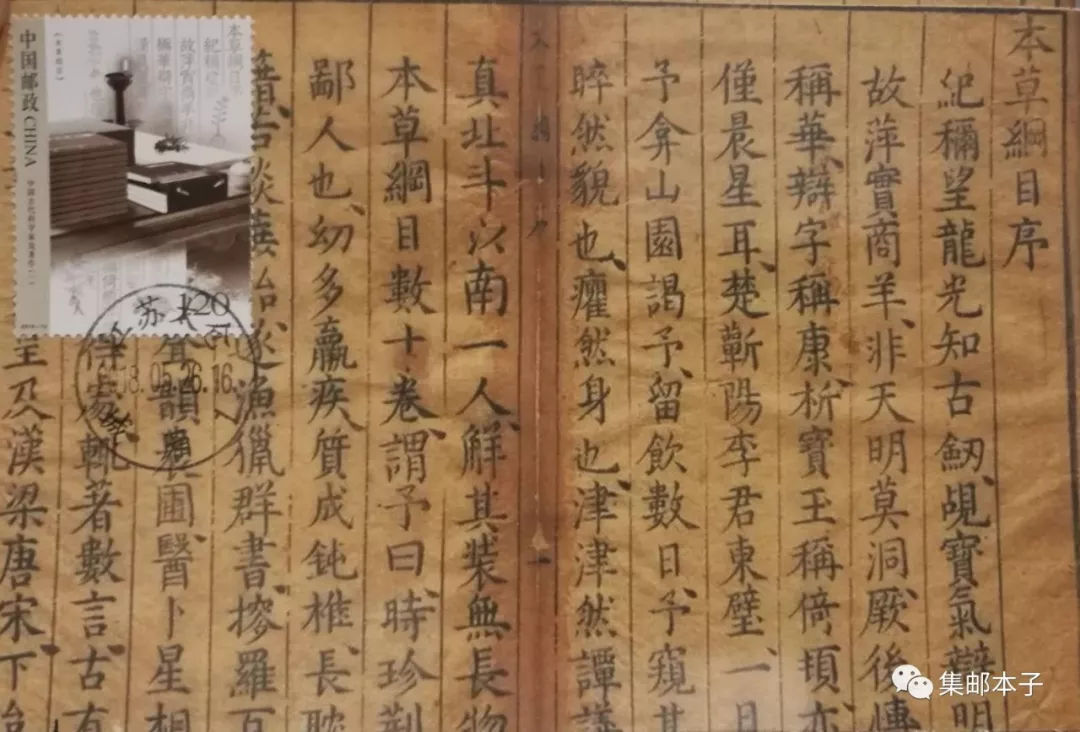 本草綱目序
紀穪望龍光知古劒、覘寶氣辯明
故萍實商羊、非天明莫洞厥後博
稱華、辯字稱康、析寶玉稱倚頓、亦
僅晨星耳、楚蘄陽李君東璧、一日
予弇山園謁予、留飲數日、予窺其
睟然貌也、癯然身也、津津然譚議
真北斗以南一人、解其裝無長物
本草綱目數十卷、謂予曰、時珍荊
鄙人也、幼多羸疾、質成鈍椎、長耽
籍、若啖蔗飴、遂漁獵群書、搜羅百
聲韻農圃、醫卜星相
家、輒著數言、古有
至及漢梁唐宋下迨
中国邮政 CHINA
苏
05.26.16
集邮本子